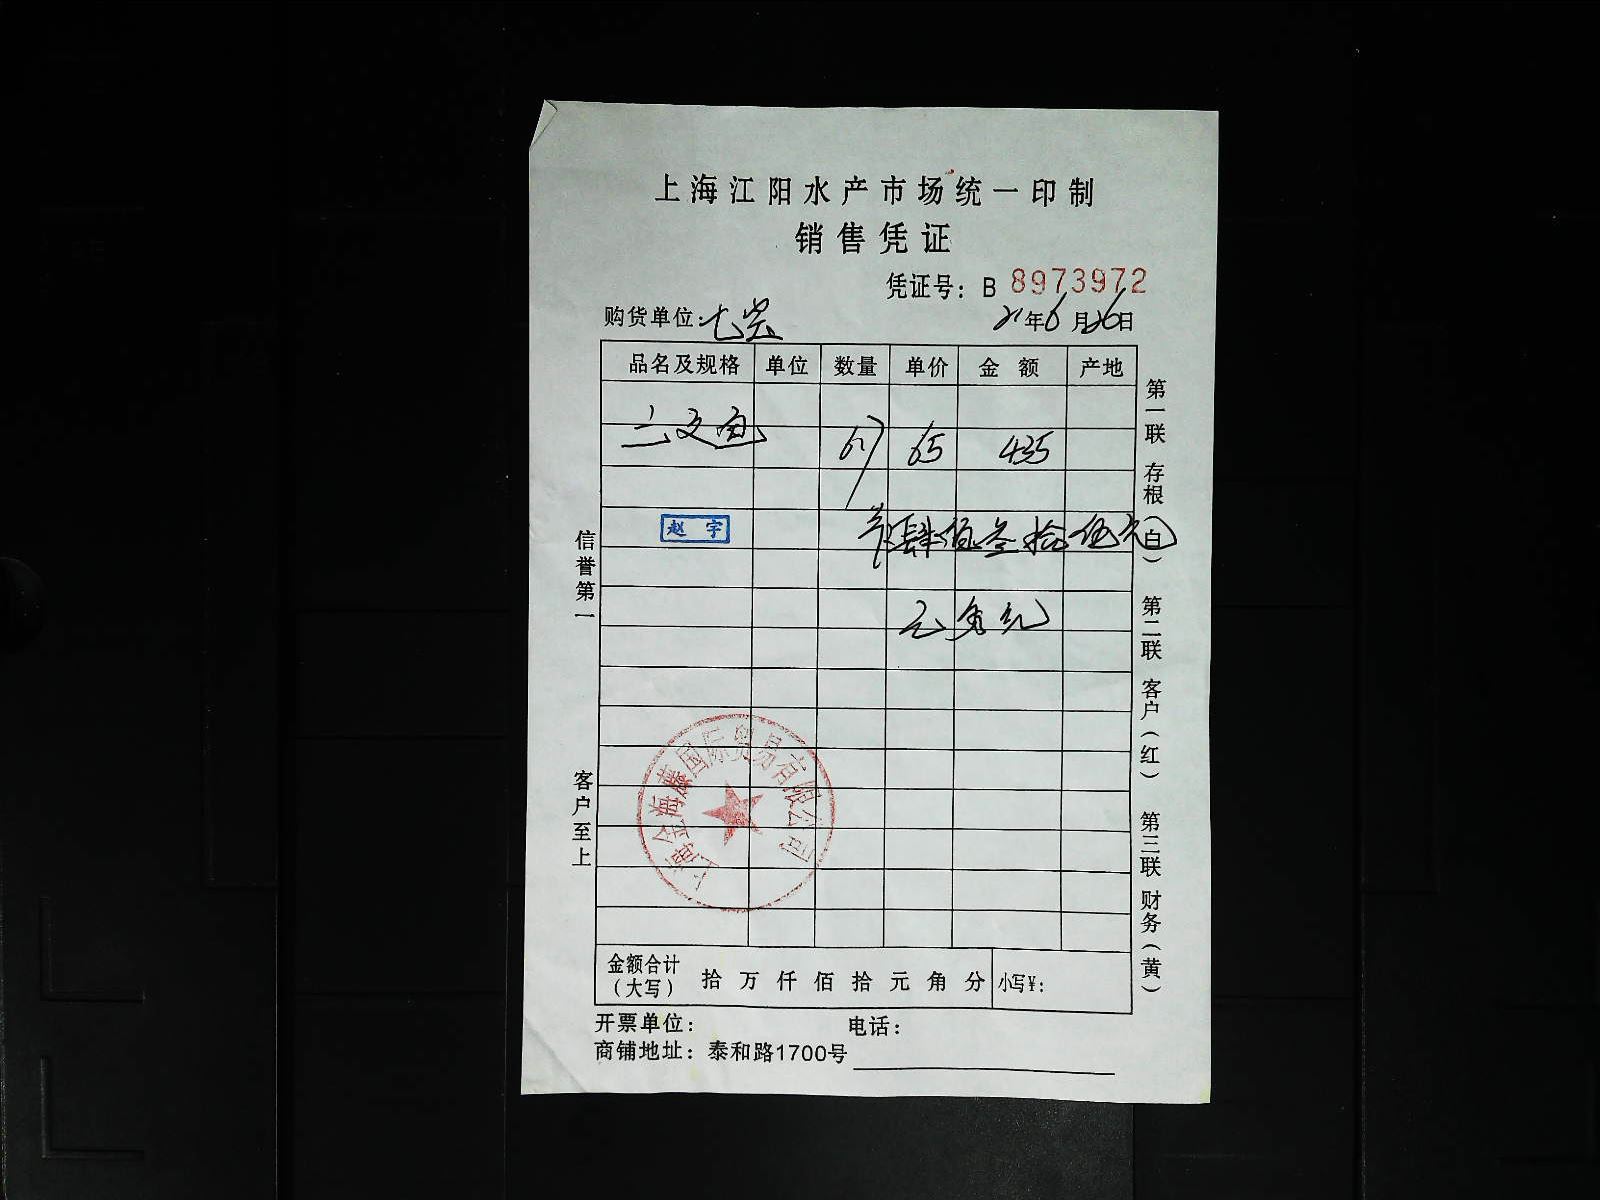 上海江阳水产市场统一印制
销售凭证
凭证号：B 8973972
购货单位：七宝 21年6月26日
品名及规格 单位 数量 单价 金额 产地
三文鱼 67 65 435
赵宇
肆佰叁拾伍元
上海金海藤国际贸易有限公司
金额合计（大写） 拾 万 仟 佰 拾 元 角 分 小写¥：
开票单位： 电话：
商铺地址：泰和路1700号
信誉第一 客户至上
第一联 存根（白） 第二联 客户（红） 第三联 财务（黄）